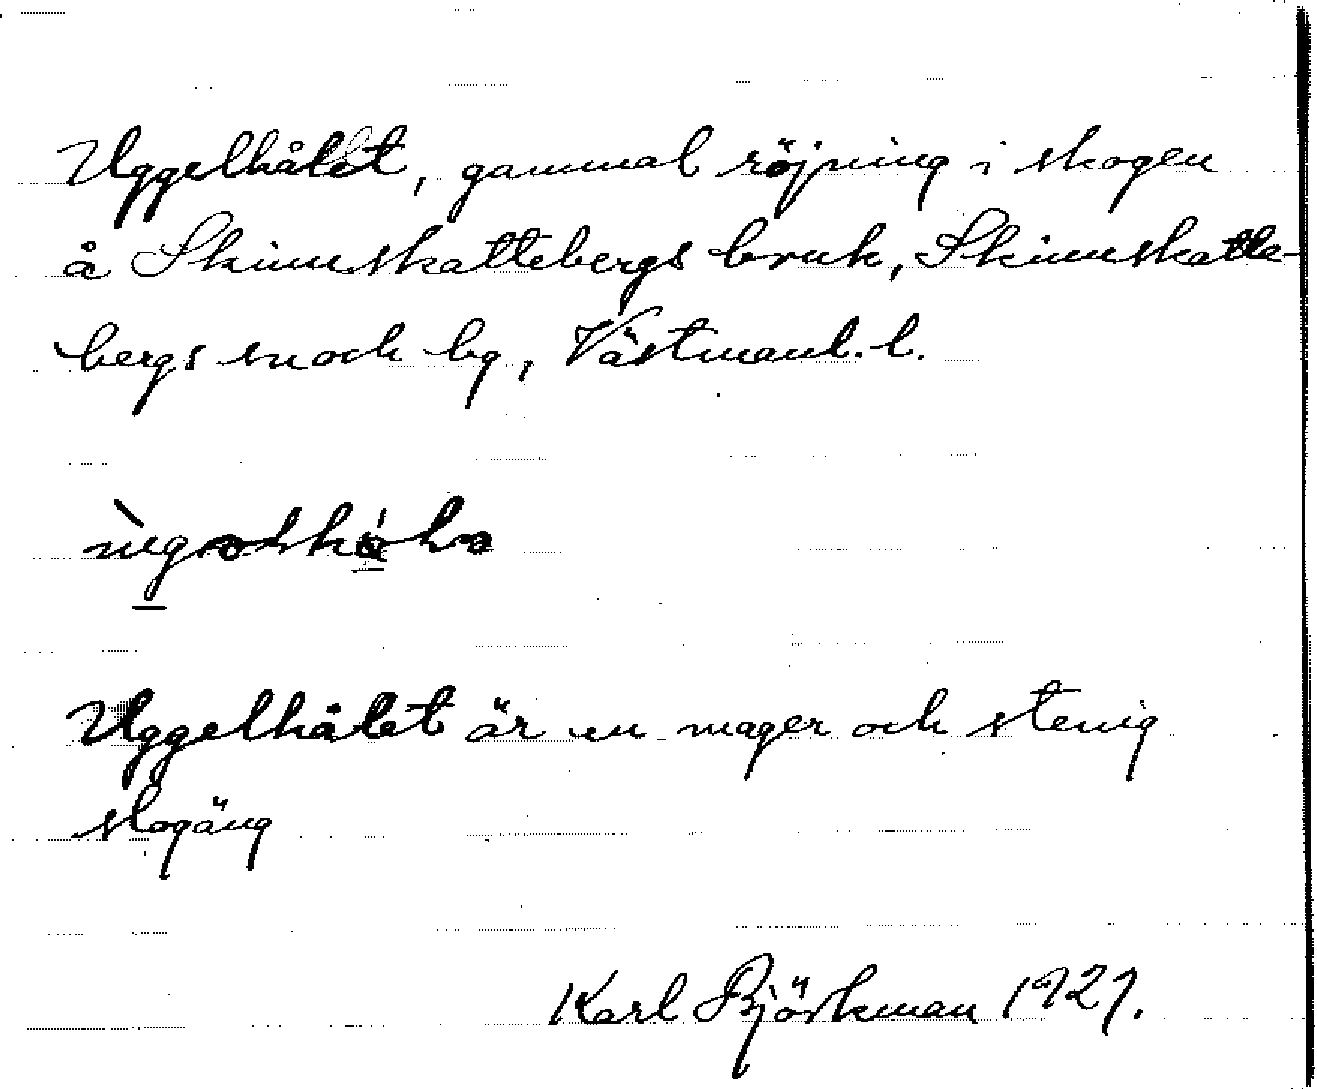 Uggelhålet, gammal röjning i skogen
å Skinnskattebergs bruk, Skinnskatte-
bergs sn och bg, Västmanl. l.
Uggelhålet är en mager och stenig
skogäng
Karl Björkman 1927.